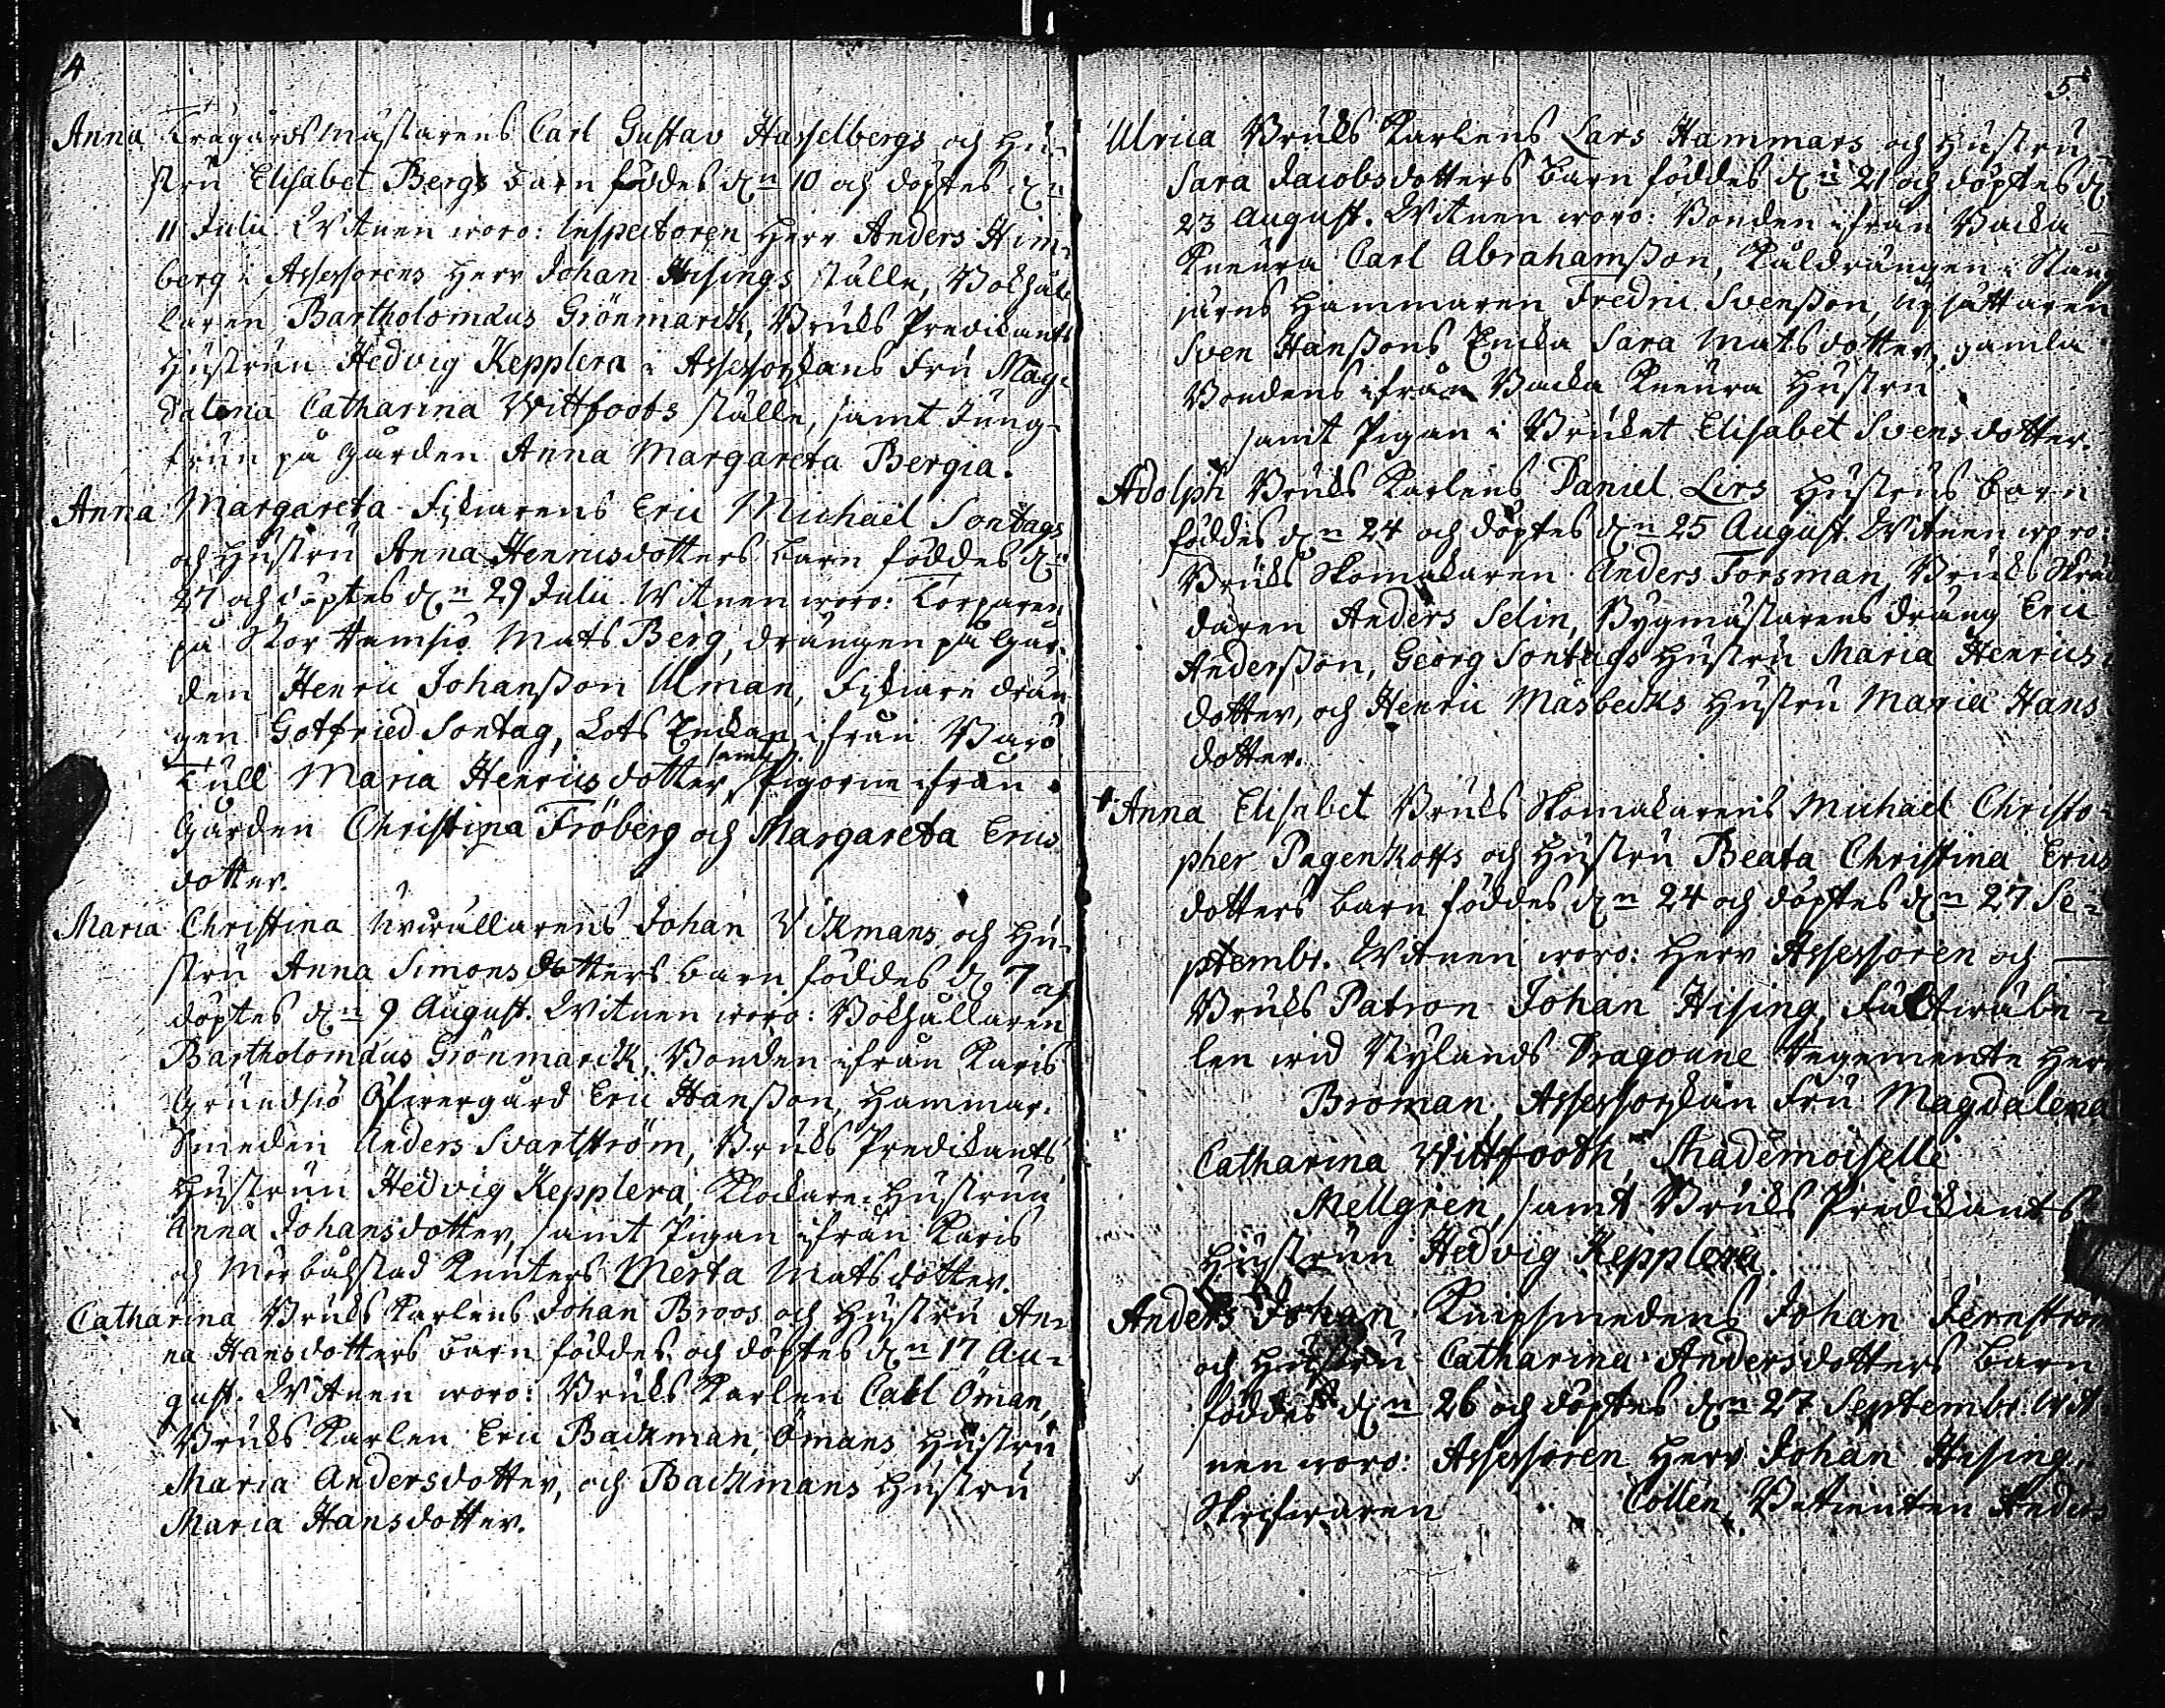 4
Anna Trägårdsmästarens Carl Gustav Hasselbergs och Hu-
stru Elisabet Bergs barn föddes dn 10 och döptes dn
11 Julii. Witnen woro: Inspectoren Herr Anders Him-
berg i Assessorens Herr Johan Hisings ställe, Bokhål-
laren Bartholomäus Grönmarck, Bruks Predikants
Hustrun Hedvig Kepplera i Assessorskans Fru Mag-
dalena Catharina Wittfooths ställe, samt Jung-
frun på Gården Anna Margareta Bergia.
Anna Margareta Fiskarens Eric Michaël Sontags
och Hustru Anna Henricsdotters barn föddes dn
27 och döptes dn 29 Julii. Witnen woro: Torparen
på Stor Ramsiö Mats Berg, drängen på Går-
den Henric Johansson Ulman, Fiskare drän
gen Gotfried Sontag, Lots Enckan ifrån Barö
samt
Kull Maria Henricsdotter, Pigorne ifrån
Gården Christina Fröberg och Margareta Erics
dotter.
Maria Christina Urwällarens Johan Vikmans och Hu-
stru Anna Simonsdotters barn föddes d 7 och
döptes dn 9 August. Witnen woro: Bokhållaren
Bartholomäus Grönmarck, Bonden ifrån Karis
Grundsiö Öfwergård Eric Hansson, Hammar-
Smeden Anders Svartström, Bruks Predikants
Hustrun Hedvig Kepplera, Klockare Hustrun
Anna Johansdotter, samt Pigan ifrån Karis
och Mörbålstad Knuters Merta Matsdotter.
Catharina Bruks Karlens Johan Broos och Hustru An-
na Hansdotters barn föddes och döptes dn 17 Au-
gust. Witnen woro: Bruks Karlen Carl Öman,
Bruks Karlen Eric Backman, Ömans Hustru
Maria Andersdotter, och Backmans Hustru
Maria Hansdotter.
5.
Ulrica Bruks Karlens Lars Hammars och Hustru
Sara Jacobsdotters barn föddes dn 21 och döptes d
23 August. Witnen woro: Bonden ifrån Backa
Kneura Carl Abrahamsson, Koldrängen i Stång
järns Hammaren Fredric Svensson, Upsättaren
Sven Hanssons Encka Sara Matsdotter, gamla
Bondens ifrån Backa Kneura Hustru
samt Pigan i Bruket Elisabet Svensdotter.
Adolph Bruks Karlens Daniel Lirs Hustrus barn
föddes dn 24 och döptes dn 25 August. Witnen woro:
Bruks Skomakaren Anders Forsman, Bruks Skräd
daren Anders Selin, Bygmästarens dräng Eric
Andersson, Georg Sontags Hustru Maria Henrics-
dotter, och Henric Masbecks Hustru Maria Hans
dotter.
† Anna Elisabet Bruks Skomakarens Michaël Christo-
pher Pagenkotts och Hustru Beata Christina Erics
dotters barn föddes dn 24 och döptes dn 27 Se-
ptembr. Witnen woro: Herr Assessoren och
Bruks Patron Johan Hising, Fältwäbe-
len wid Nylands Dragoune Regemente Herr
Broman, Assessorskan Fru Magdalena
Catharina Wittfooth, Mademoiselle
Mellgren, samt Bruks Predikants
Hustrun Hedvig Kepplera.
Anders Johan Knipsmedens Johan Jernström
och Hustru Catharina Andersdotters barn
föddes dn 26 och döptes dn 27 Septembr. Wit
nen woro: Assessoren Herr Johan Hising,
Skrifwaren Collen, Betienten Anders